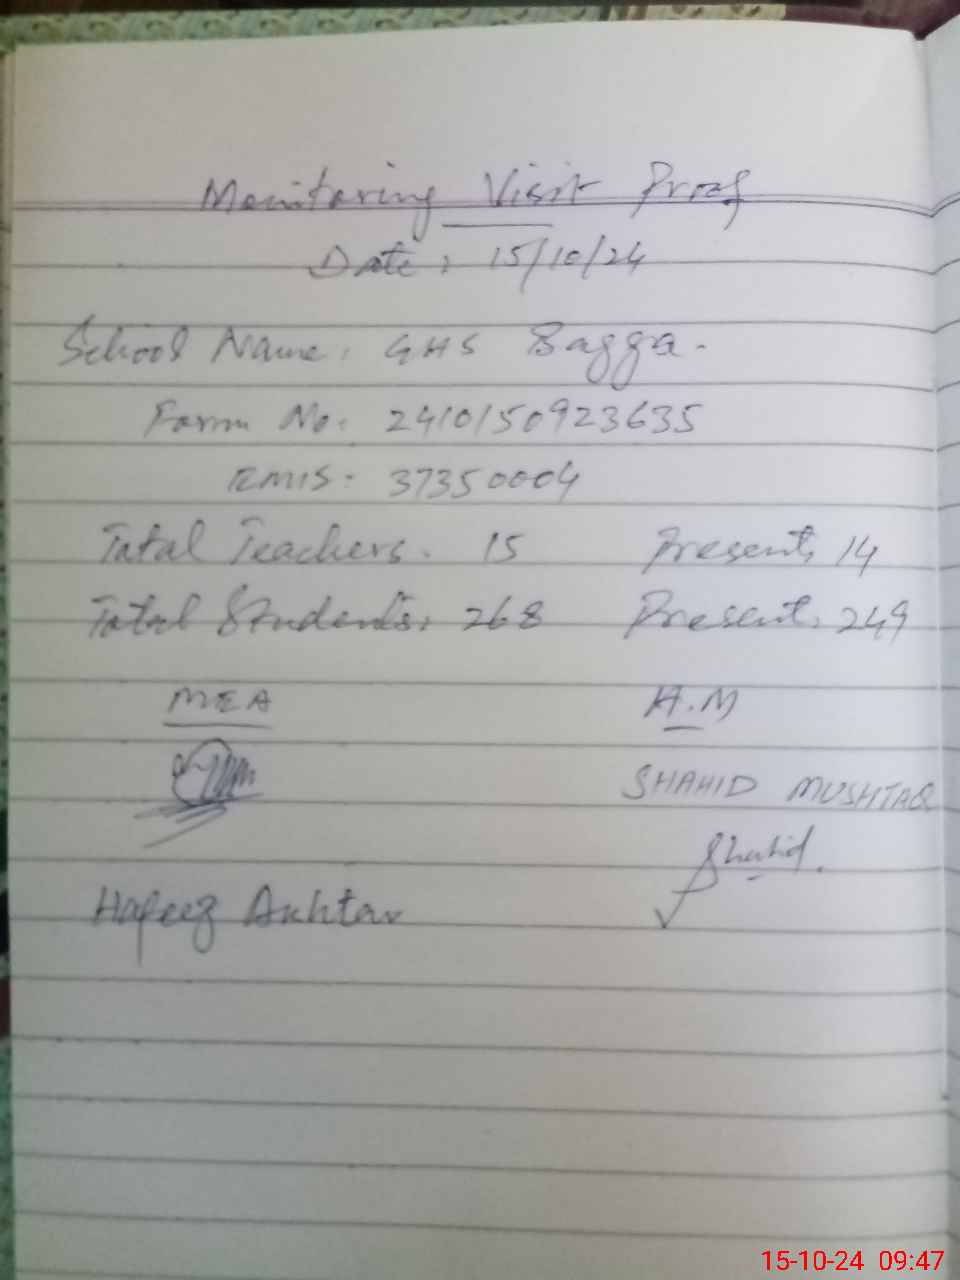 Monitoring Visit Proof
Date: 15/10/24
School Name: GHS Bagga.
Form No: 2410150923635
EMIS- 37350004
Total Teachers. 15 Present, 14
Total Students: 268 Present: 249
MEA H.M
SHAHID MUSHTAQ
Shahid.
Hafeez Akhtar
15-10-24 09:47